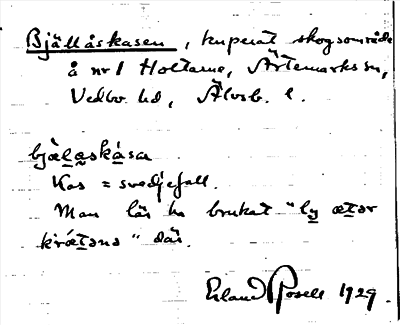 Bjällåskasen, kuperat skogsområde
å nr 1 Holtarne, Ärtemarks sn,
Vedbo hd, Älvsb. l.
bjäḷaskása
Kas = svedjefall.
Man lär ha brukat "ly ætər
krǽtənə" där.
Erland Rosell 1929.